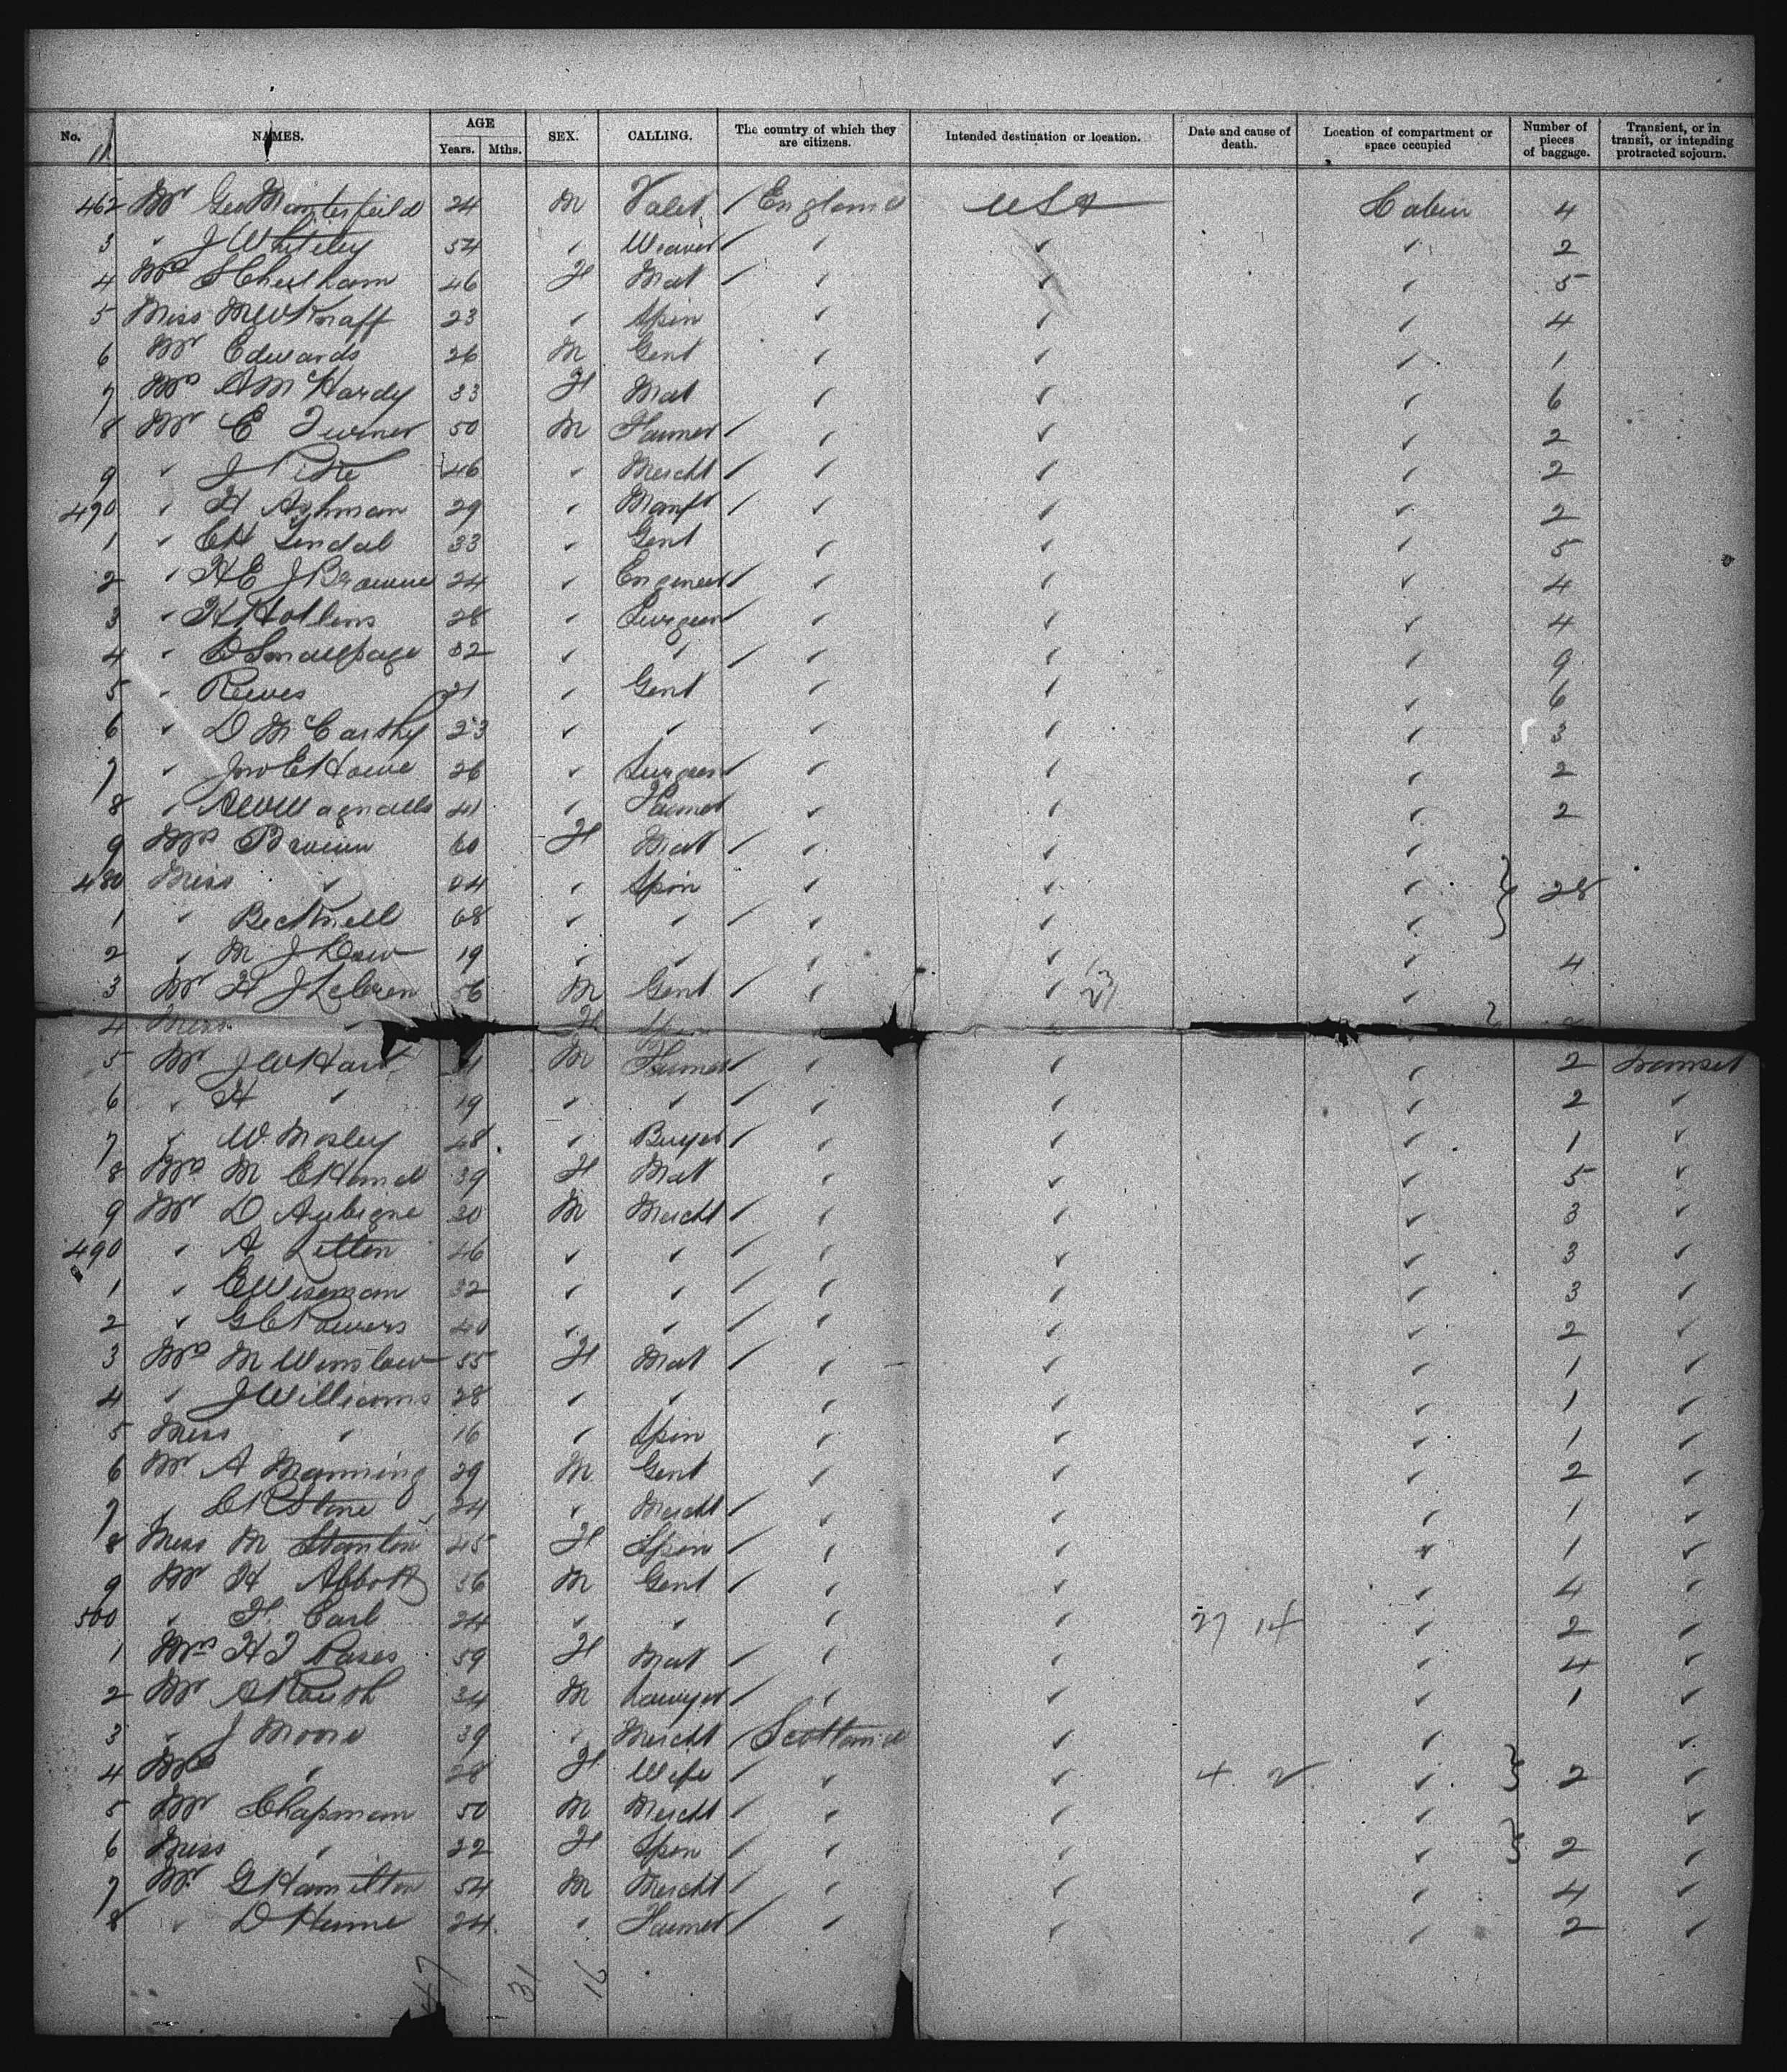 No. NAMES. AGE Years. Mths. SEX. CALLING. The country of which they are citizens. Intended destination or location. Date and cause of death. Location of compartment or space occupied Number of pieces of baggage. Transient, or in transit, or intending protracted sojourn.
462 Mr Geo Manterfield 24 M Valet / England USA Cabin 4
3 " J Whiteley 54 " Weaver / " " " 2
4 Mrs S Cheetham 46 F Mat / " " " 5
5 Miss M W Knaff 23 " Spin " " " 4
6 Mr Edwards 26 M Gent " " " 1
7 Mrs A McHardy 33 F Mat " " " 6
8 Mr E Turner 50 M Farmer / " " " 2
9 " J Pike 46 " Mercht / " " " 2
470 " H Ashman 29 " Manft / " " " 2
1 " E H Lendal 33 " Gent " " " 5
2 " H E J Browne 24 " Engineer / " " " 4
3 " H Hollins 28 " Surgeon / " " " 4
4 " Smallpage 32 " " / " " " 9
5 " Reeves 21 " Gent " " " 6
6 " D McCarthy 23 " " " " " 3
7 " Jno E Howe 26 " Surgeon / " " " 2
8 " 41 " Farmer " " " 2
9 Mrs Brown 60 F Mat / " " "
480 Miss " 24 " Spin " " " } 28
1 " Becknell 68 " " / " " "
2 " M J Dow 19 " " / " " " 4
3 Mr H J 56 M Gent / " " 23 "
4 Miss " F Spin
5 Mr J W Hart M Farmer / " " " 2 transit
6 " H " 19 " " / " " " 2 "
7 " W Mosley 48 " Buyer / " " " 1 "
8 Mrs M E Hand 39 F Mat " " " 5 "
9 Mr D Aubigne 30 M Mercht / " " " 3 "
490 " A Litten 46 " " / " " " 3 "
1 " E Wiseman 32 " " / " " " 3 "
2 " G C Powers 40 " " / " " " 2 "
3 Mrs M Winslow 55 F Mat / " " " 1 "
4 " J Williams 28 " " " " " 1 "
5 Miss " 16 " Spin " " " 1 "
6 Mr A Manning 29 M Gent " " " 2 "
7 " C R Stone 24 " Mercht / " " " 1 "
8 Miss M Stanton 45 F Spin / " " " 1 "
9 Mr H Abbott 36 M Gent / " " " 4 "
500 " F. Carl 24 " " " " 27 14 " 2 "
1 Mrs H T Cases 59 F Mat / " " " 4 "
2 Mr A Roush 34 M Lawyer / " " " 1 "
3 " J Moore 39 " Mercht / Scotland " " "
4 Mrs " 28 F Wife / " " 4 2 " } 2 "
5 Mr Chapman 50 M Mercht / " " " "
6 Miss " 22 F Spin / " " " } 2 "
7 Mr G Hamilton 54 M Mercht / " " " 4 "
8 " D Hume 24 " Farmer / " " " 2 "
47 31 16